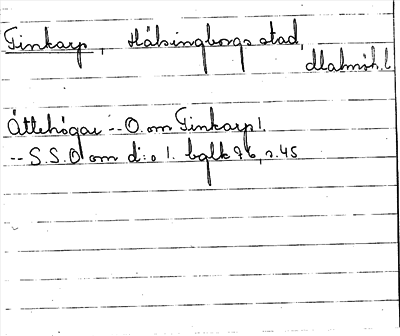 Finkarp, Hälsingborgs stad,
Malmöh.l.
Ättehögar -- O. om Finkarp l.
-- S.S.O om d:o l. bglk 76, s. 45